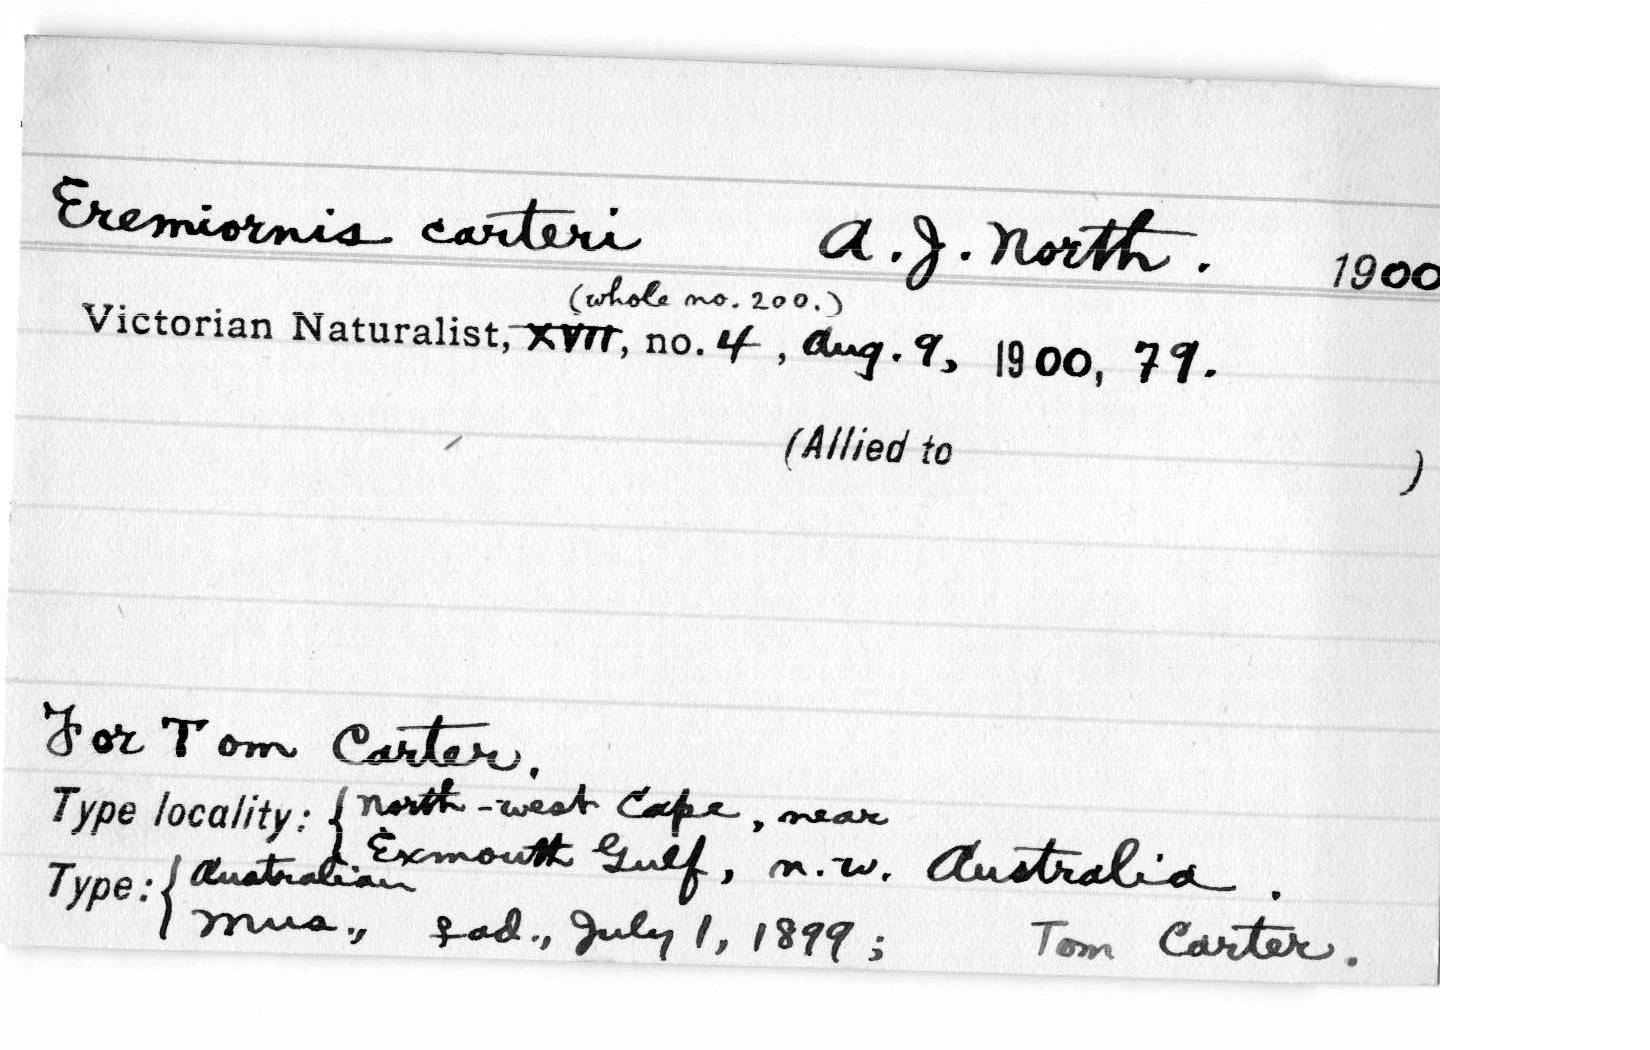 Eremiornis carteri A. J. North. 1900
(whole no. 200.)
Victorian Naturalist, XVII, no. 4, Aug. 9, 1900, 79.
(Allied to )
For Tom Carter.
Type locality: { North-west Cape, near
Exmouth Gulf, n.w. Australia.
Type: { Australian
Mus., ♀ ad., July 1, 1899; Tom Carter.